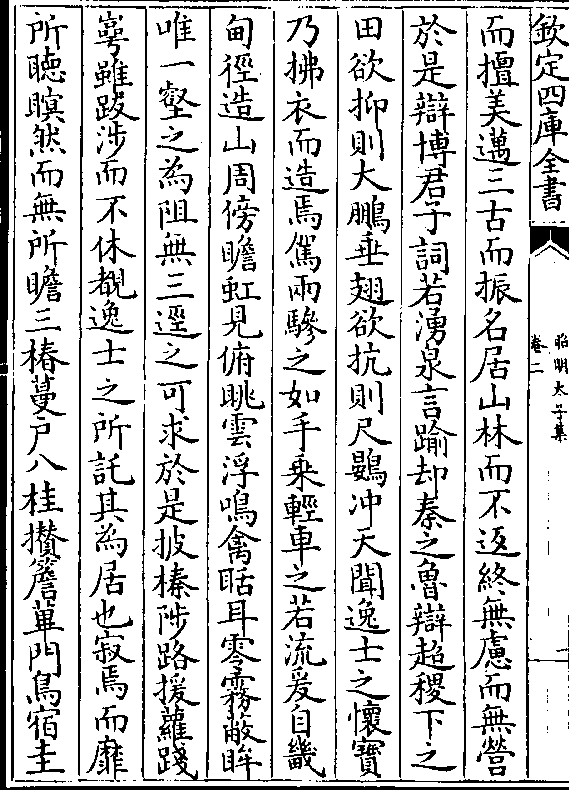 欽定四庫全書
昭明太子集
卷二
而擅美邁三古而振名居山林而不返終無慮而無營
於是辯博君子詞若湧泉言踰却秦之魯辯超稷下之
田欲抑則大鵬垂翅欲抗則尺鷃冲天聞逸士之懷寶
乃拂衣而造焉駕兩驂之如手乗輕車之若流爰自畿
甸徑造山周傍瞻虹見俯眺雲浮鳴禽聒耳零霧蔽眸
唯一壑之為阻無三逕之可求於是披榛陟路援蘿踐
蕚雖跋涉而不休覩逸士之所託其為居也寂焉而靡
所聴瞑然而無所瞻三椿蔓户八桂攅簷蓽門鳥宿圭